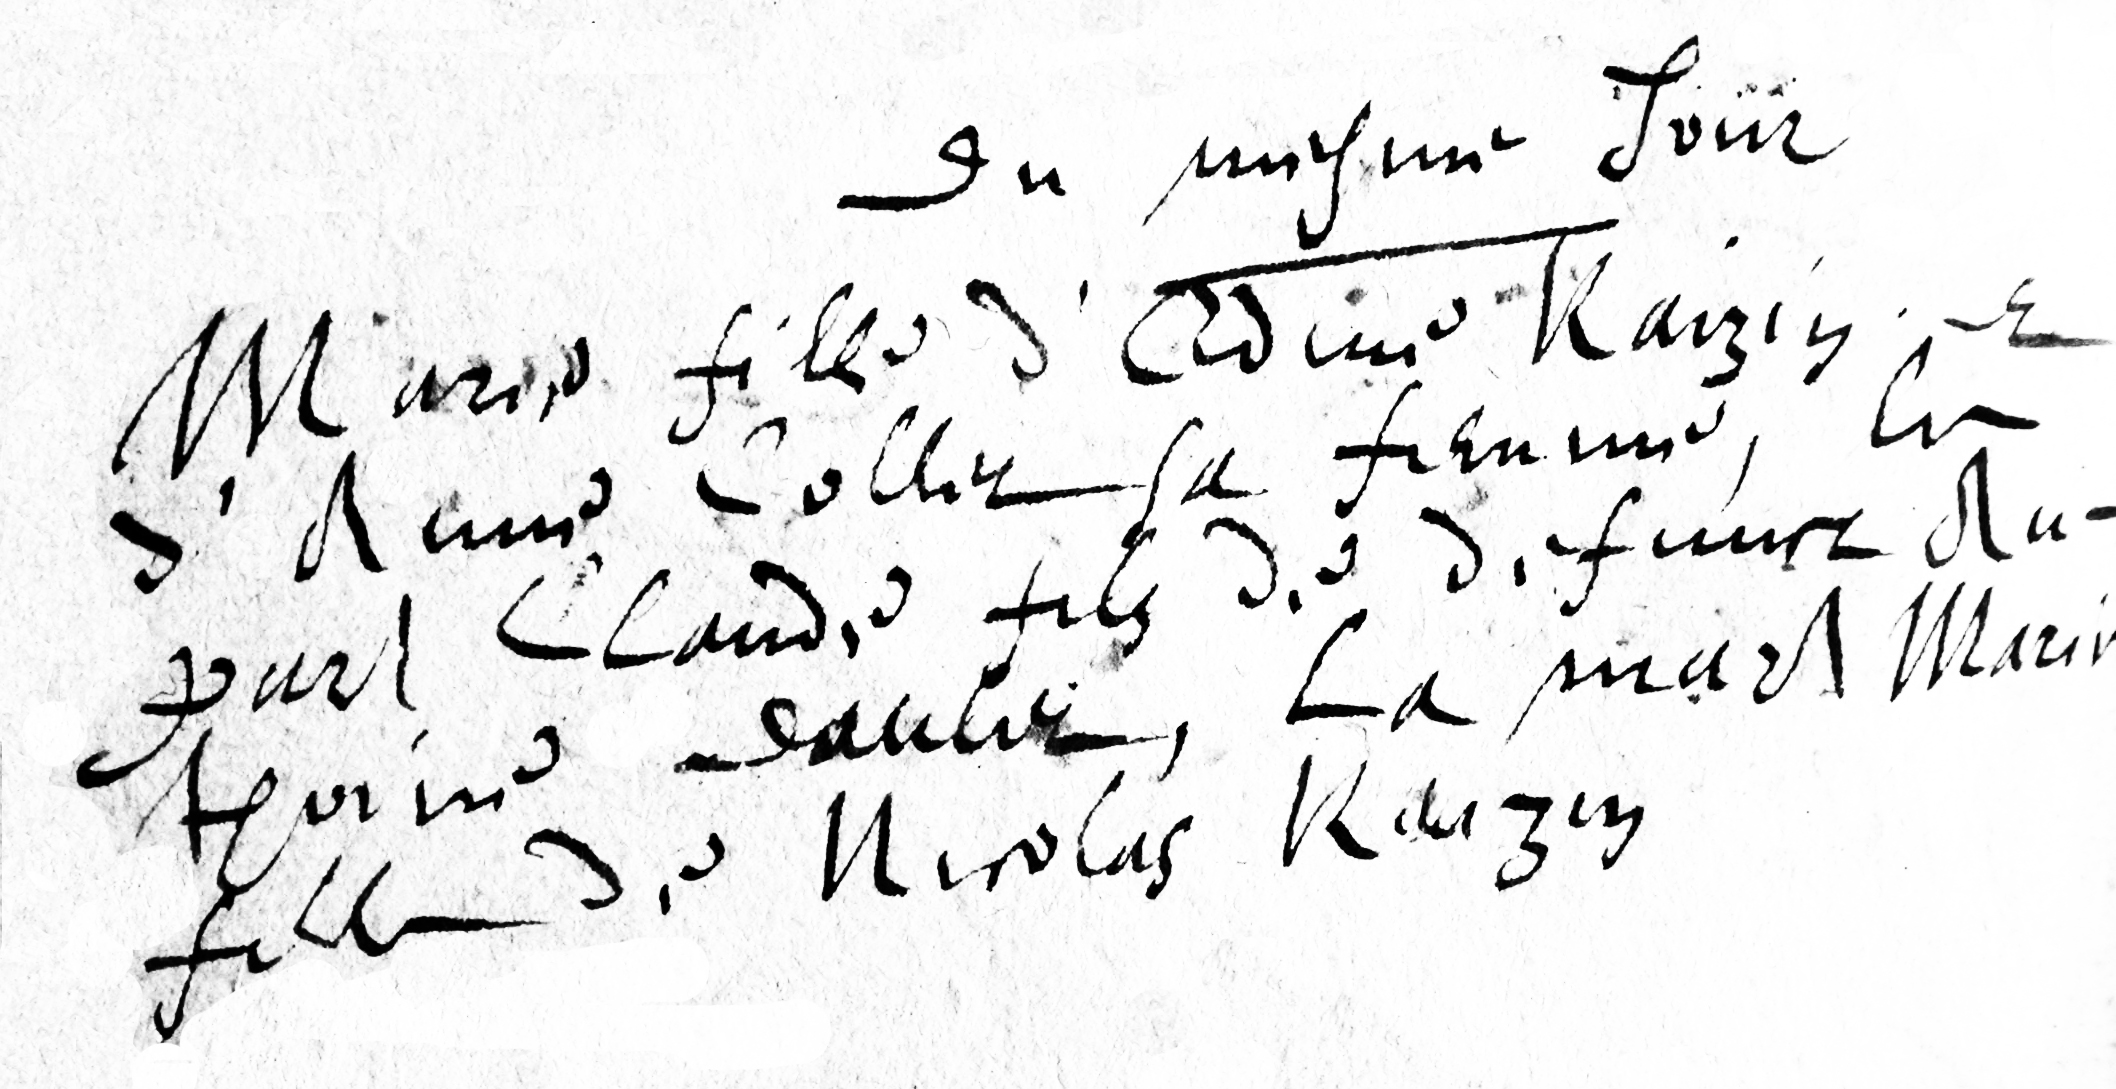 Du mesme Jour
Marie fille d'Edme Raizin et
d'Anne Collin sa femme, le
part Claude fils de defunct An-
thoine Daulin, La mart Marie
fille de Nicolas Raizin